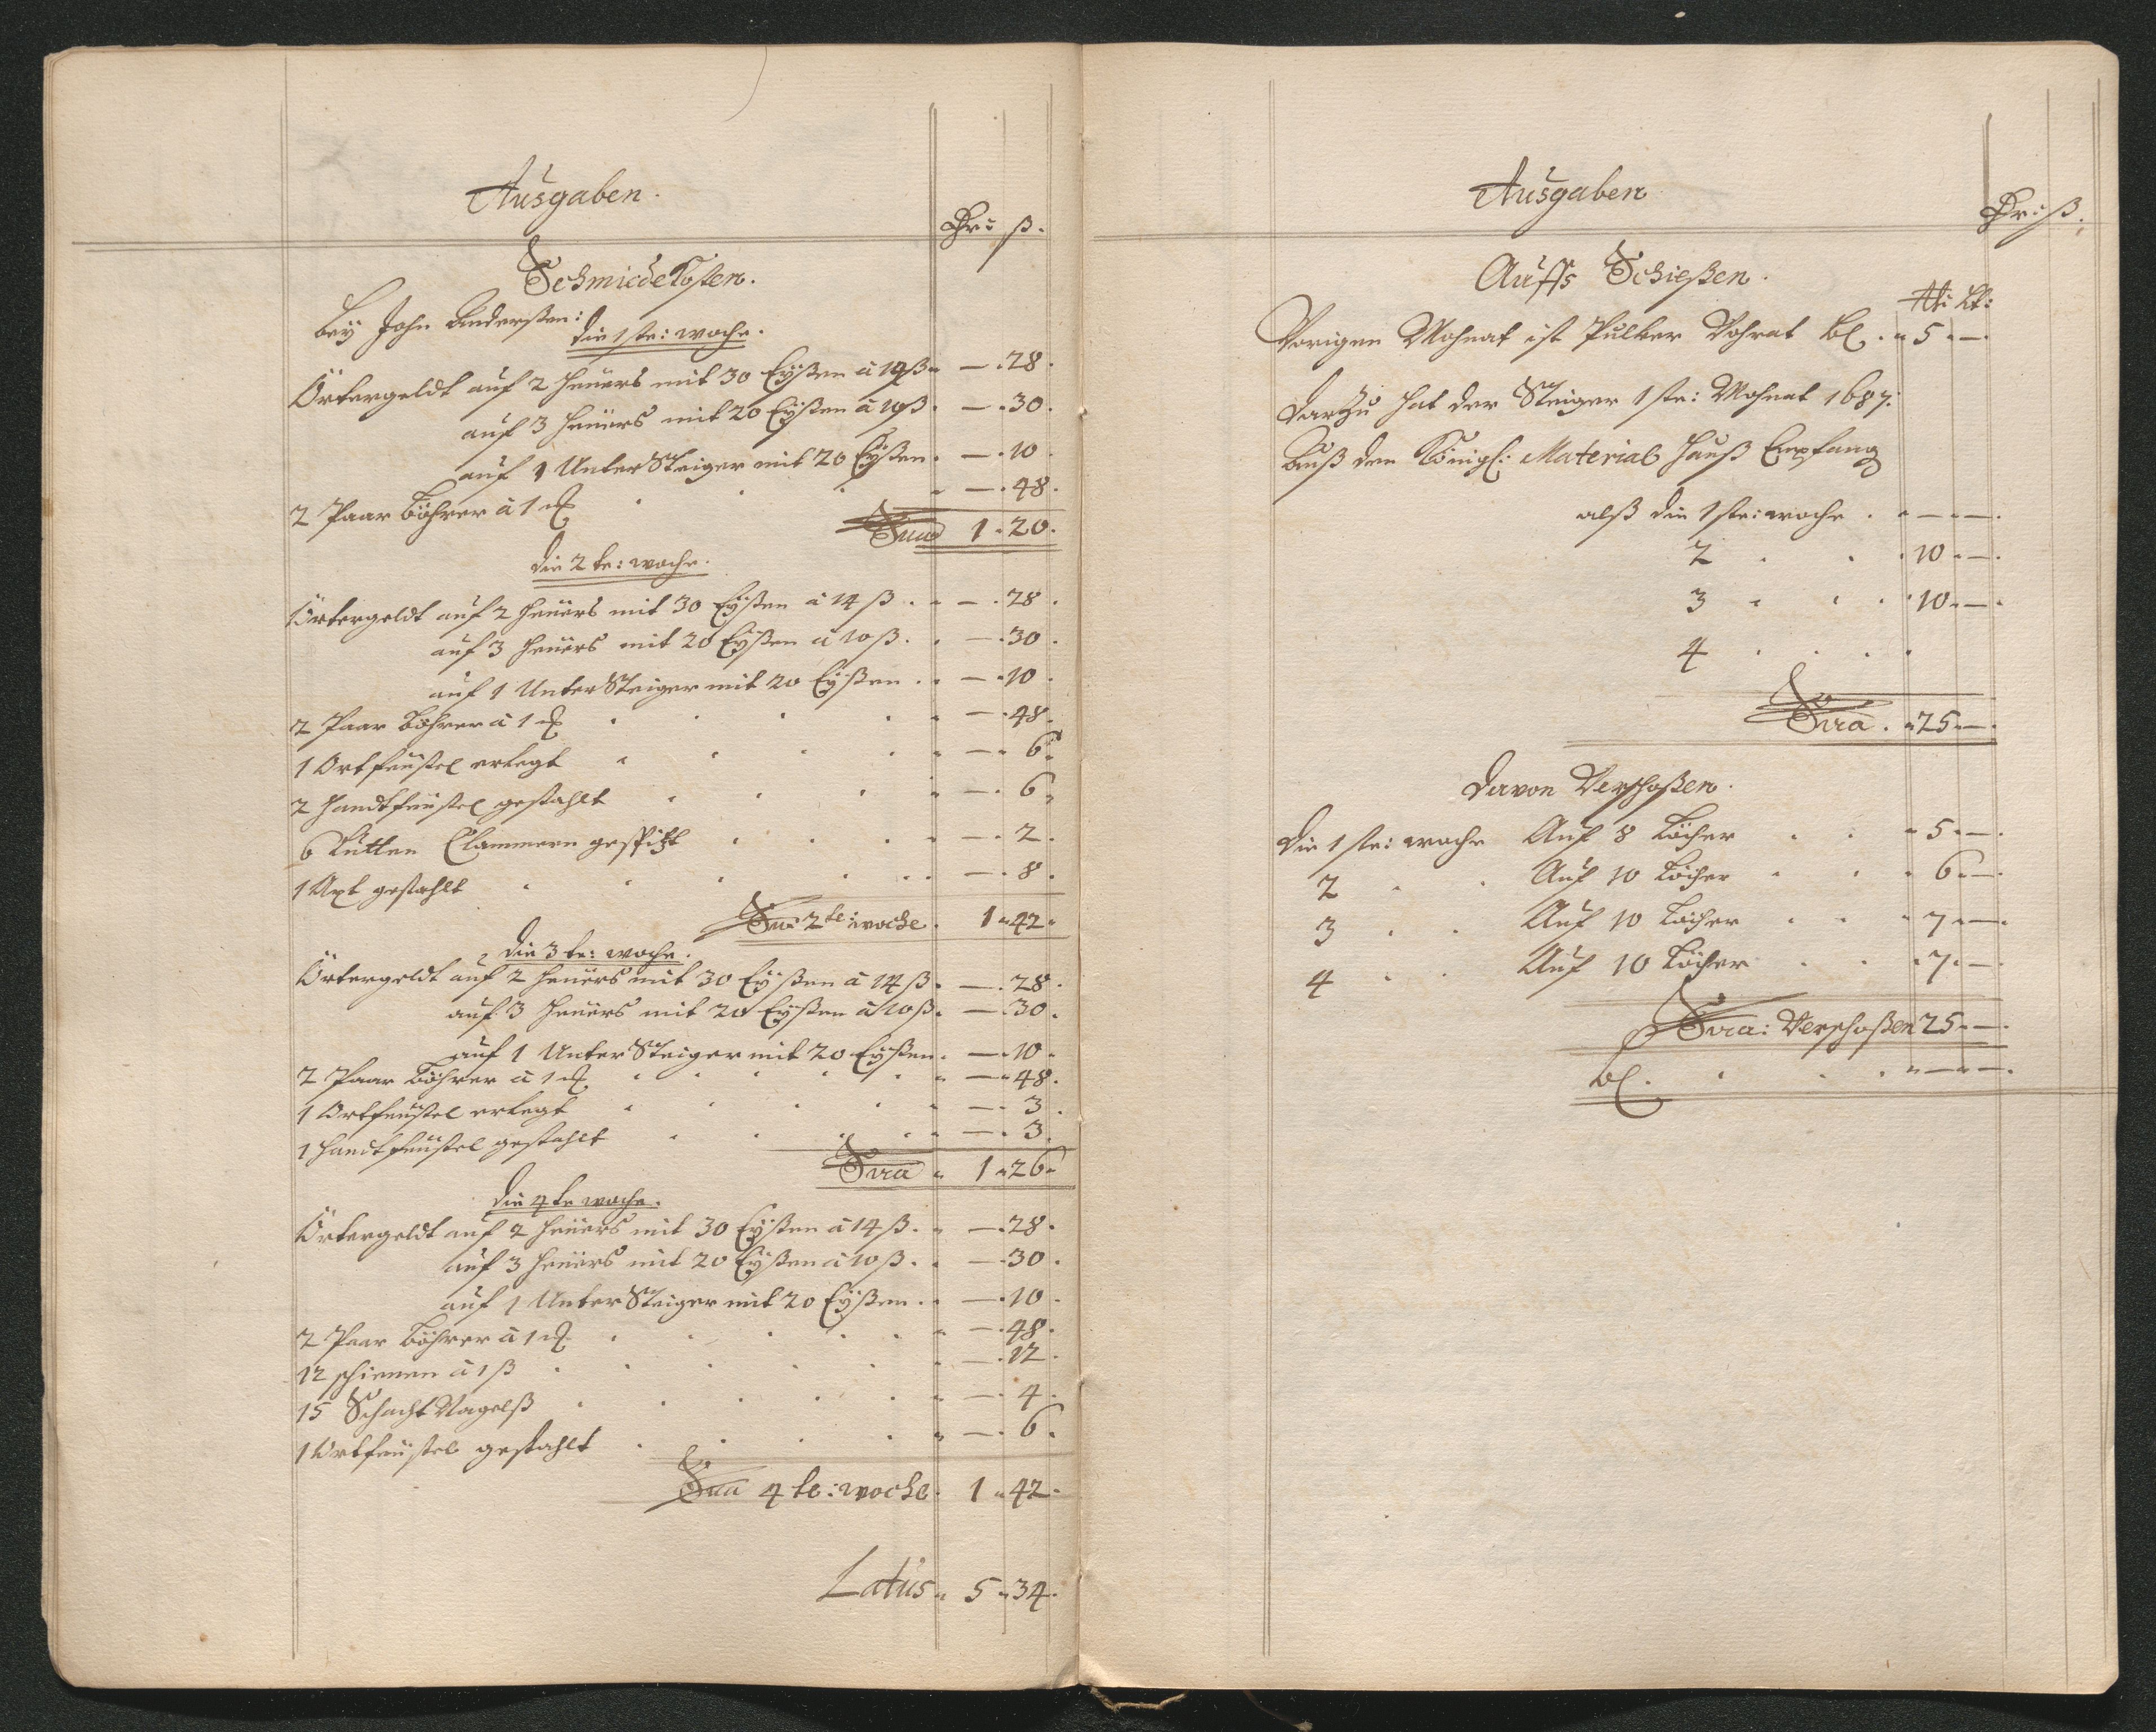 Ausgaben.
Thr: ß.
Schmiede Kosten.
bey John Anderßen:
die 1ste: woche.
Örtergeldt auf 2 heüers mit 30 Eyßen à 14 ß. — . 28.
auf 3 heüers mit 20 Eyßen à 10 ß. — . 30.
auf 1 Unter Steiger mit 20 Eyßen. — . 10.
2 Paar Böhrer à 1 — . 48.
Sma 1 . 20.
die 2te: woche.
Örtergeldt auf 2 heüers mit 30 Eyßen à 14 ß. — . 28.
auf 3 heüers mit 20 Eyßen à 10 ß. — . 30.
auf 1 Unter Steiger mit 20 Eyßen. — . 10.
2 Paar Böhrer à 1 — . 48.
1 Ortfeüstel erlegt — . 6.
2 handtfeüstel gestahlt — . 6.
6 Clammern gespitzt — . 2.
1 Axt gestahlt — . 8.
Sma 2te: woche. 1 . 42.
die 3te: woche.
Örtergeldt auf 2 heüers mit 30 Eyßen à 14 ß. — . 28.
auf 3 heüers mit 20 Eyßen à 10 ß. — . 30.
auf 1 Unter Steiger mit 20 Eyßen. — . 10.
2 Paar Böhrer à 1 — . 48.
1 Ortfeüstel erlegt — . 3.
1 handtfeüstel gestahlt — . 3.
Sma 1 . 26.
die 4te woche.
Örtergeldt auf 2 heüers mit 30 Eyßen à 14 ß. — . 28.
auf 3 heüers mit 20 Eyßen à 10 ß. — . 30.
auf 1 Unter Steiger mit 20 Eyßen. — . 10.
2 Paar Böhrer à 1 — . 48.
12 schienen à 1 ß — . 12.
15 Schacht Nagelß — . 4.
1 Ortfeüstel gestahlt — . 6.
Sma 4te: woche. 1 . 42.
Latus. 5 . 34.
Ausgaben
Thr: ß.
Auffs Schießen.
Vorigen Mohnat ist Pulver Vohrat bl. 5 . —
darzu hat der Steiger 1ste: Mohnat 1687.
auß den Königl: Material Hauß Empfang
alß die 1ste: woche . — . —.
2 . 10 . —.
3 . 10 . —.
4
Sma . 25 . —.
davon Verschoßen.
die 1ste: woche Auf 8 Löcher . 5 . —.
2 Auf 10 Löcher . 6 . —.
3 Auf 10 Löcher . 7 . —.
4 Auf 10 Löcher . 7 . —.
Sma: Verschoßen 25 . —.
bl. . — . —.